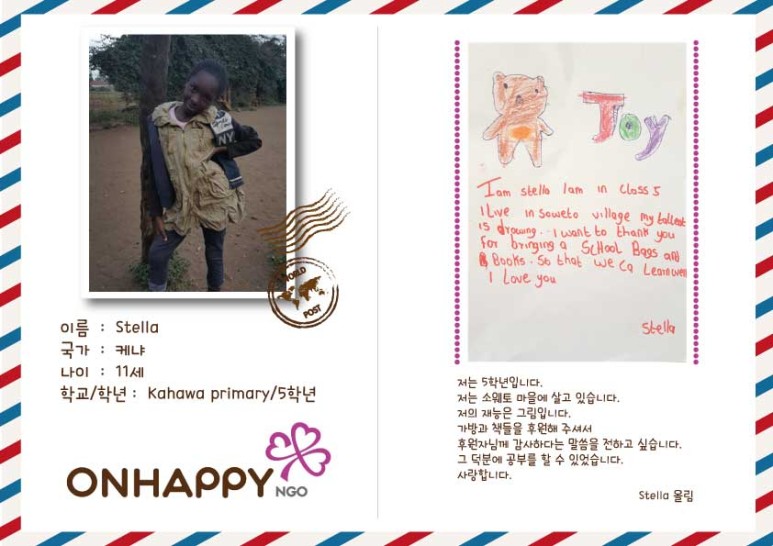 WORLD
POST
이름 : Stella
국가 : 케냐
나이 : 11세
학교/학년 : Kahawa primary/5학년
ONHAPPY
NGO
NY
Joy
I am stella I am in Class 5
I Live in Soweto village my tallest
is drowing. I want to thank you
For bringing a School Bags and
Books. So that we Ca Learn well
I Love you
Stella
저는 5학년입니다.
저는 소웨토 마을에 살고 있습니다.
저의 재능은 그림입니다.
가방과 책들을 후원해 주셔서
후원자님께 감사하다는 말씀을 전하고 싶습니다.
그 덕분에 공부를 할 수 있었습니다.
사랑합니다.
Stella 올림